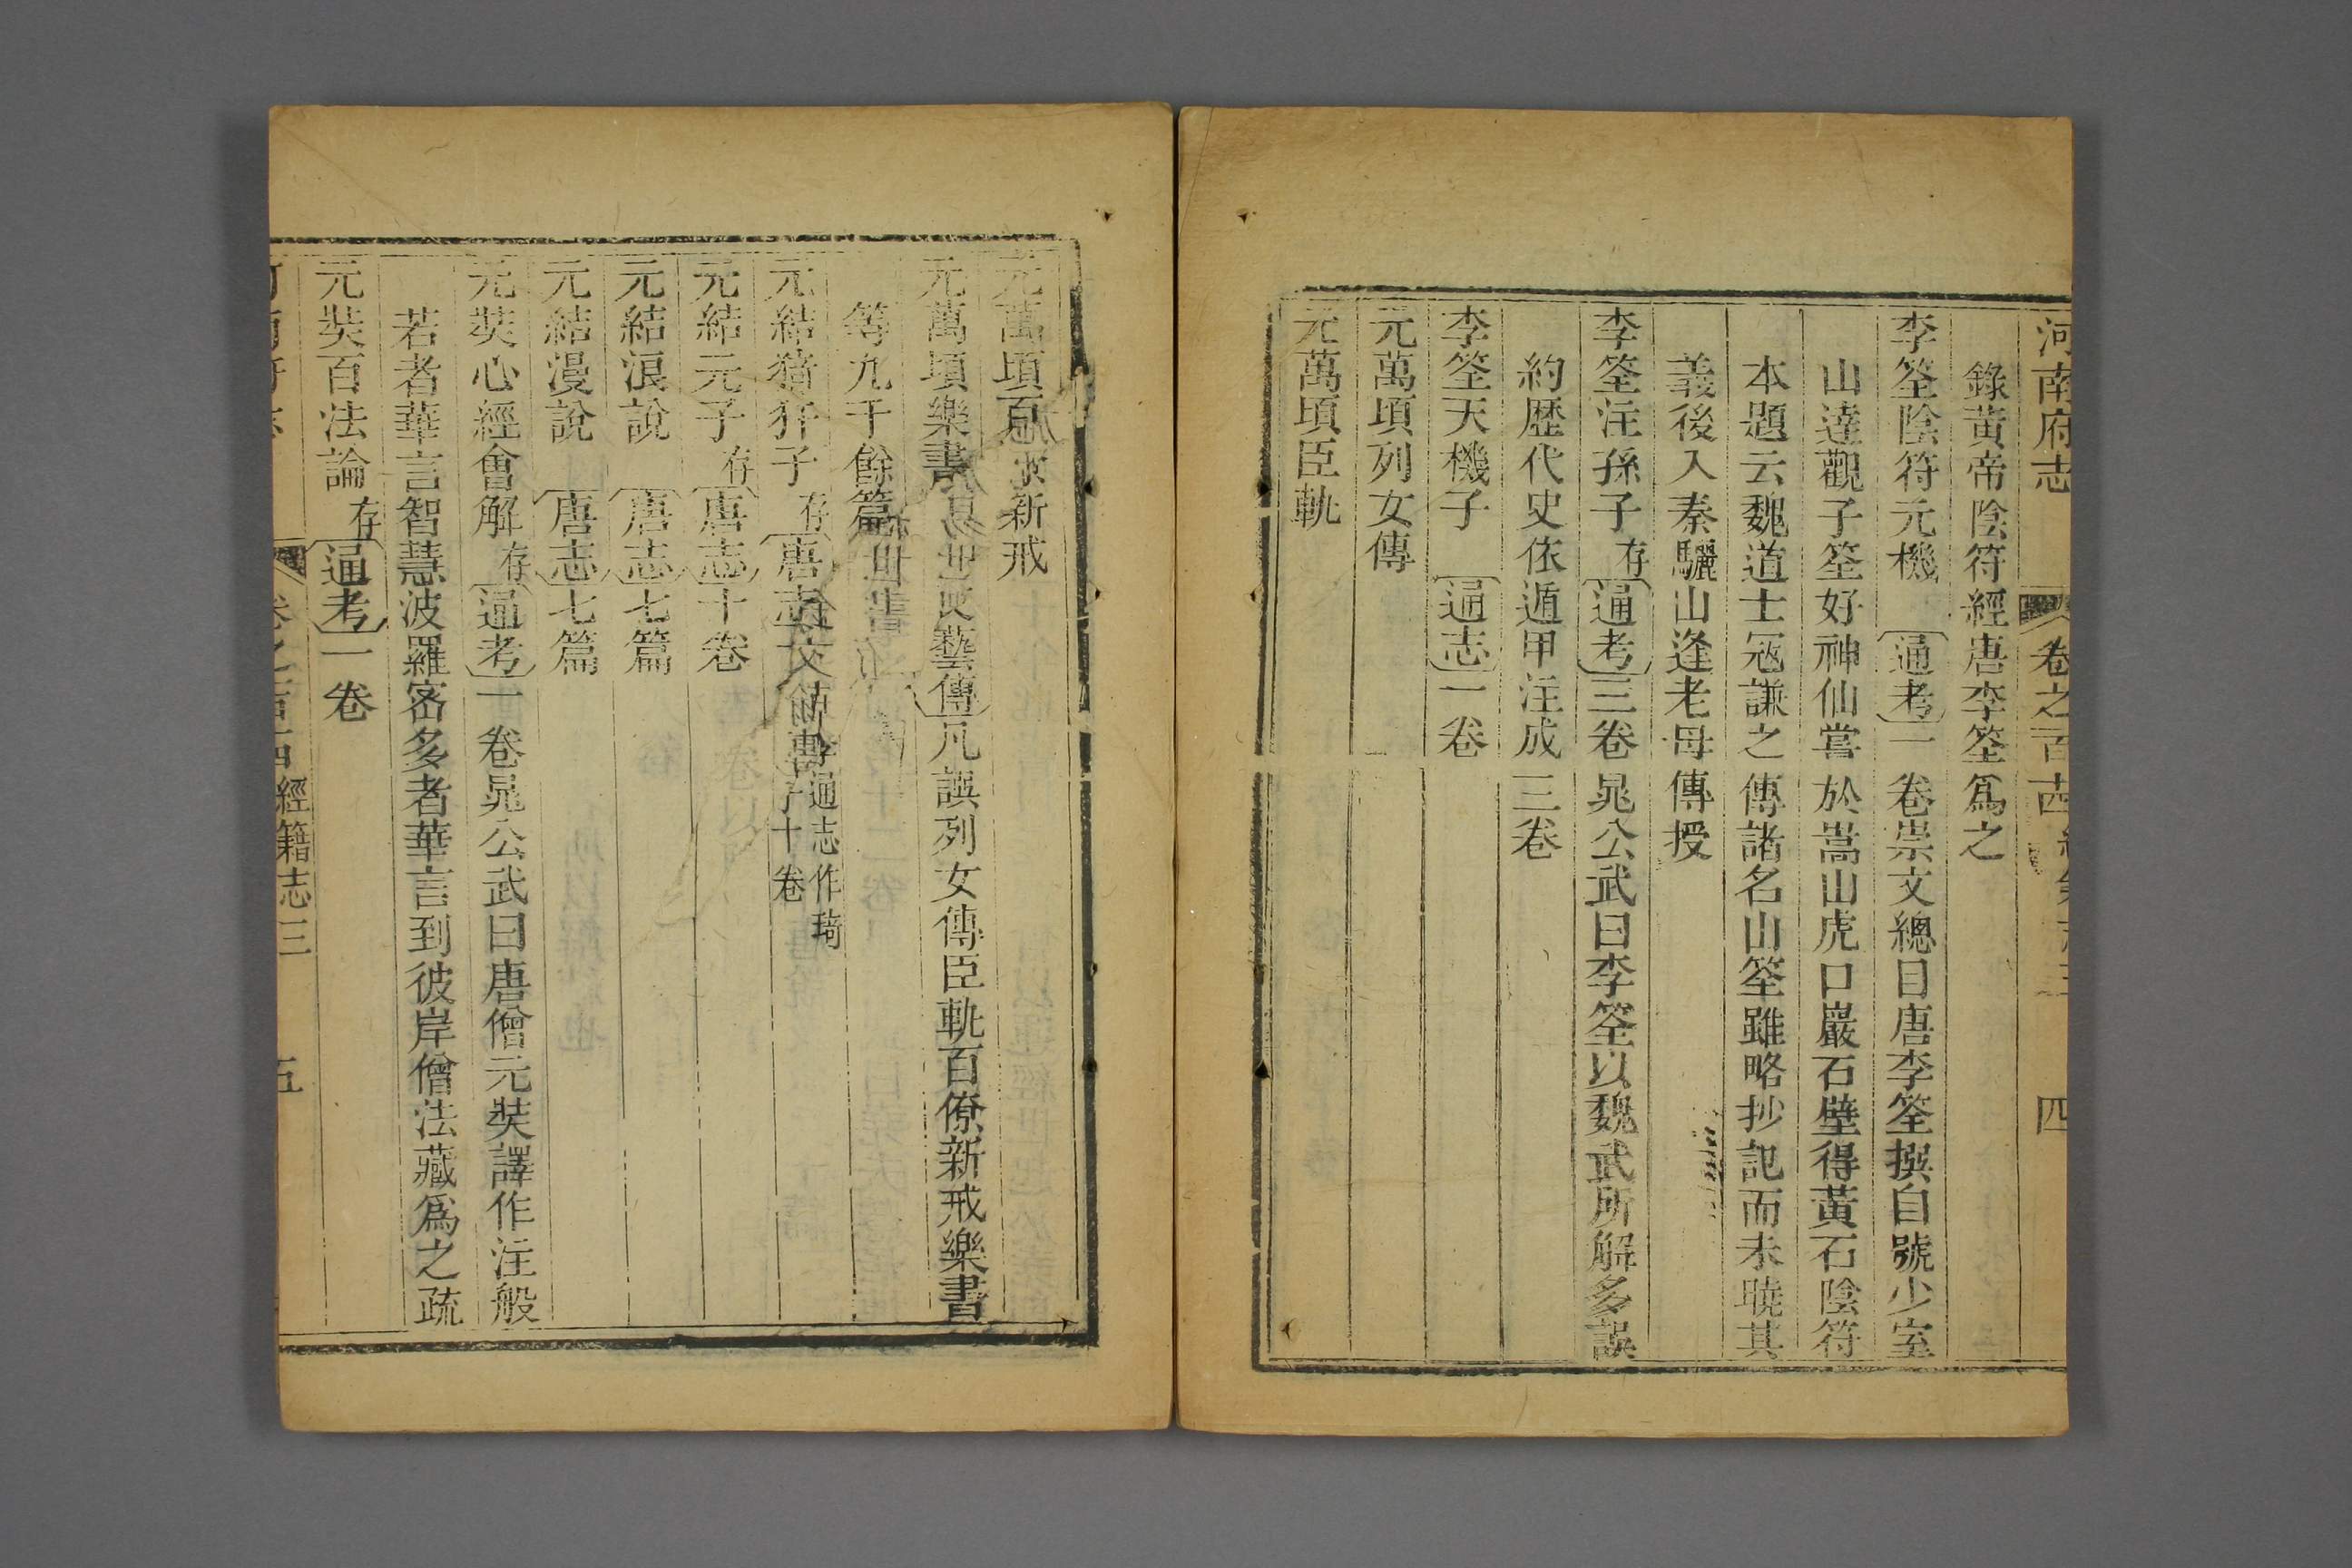 河南府志 卷之百古 四
錄黃帝陰符經唐李筌爲之
李筌陰符元機 通考一卷崇文總目唐李筌撰自號少室
山達觀子筌好神仙嘗於嵩山虎口巖石壁得黃石陰符
本題云魏道士寇謙之傳諸名山筌雖略抄記而未曉其
義後入秦驪山逢老母傳授
李筌注孫子 存 通考三卷晁公武曰李筌以魏武所解多誤
約歷代史依遁甲注成三卷
李筌天機子 通志一卷
元萬頃列女傳
元萬頃臣軌
元萬頃百 新戒
元萬頃樂書 藝傳凡譔列女傳臣軌百僚新戒樂書
等九千餘篇
元結猗犴子 存 唐志 通志作琦犴子十卷
元結元子 存 唐志十卷
元結浪說 唐志七篇
元結漫說 唐志七篇
元奘心經會解 存 通考一卷晁公武曰唐僧元奘譯作注般
若者華言智慧波羅宻多者華言到彼岸僧法藏爲之疏
元奘百法論 存 通考一卷
經籍志三 五